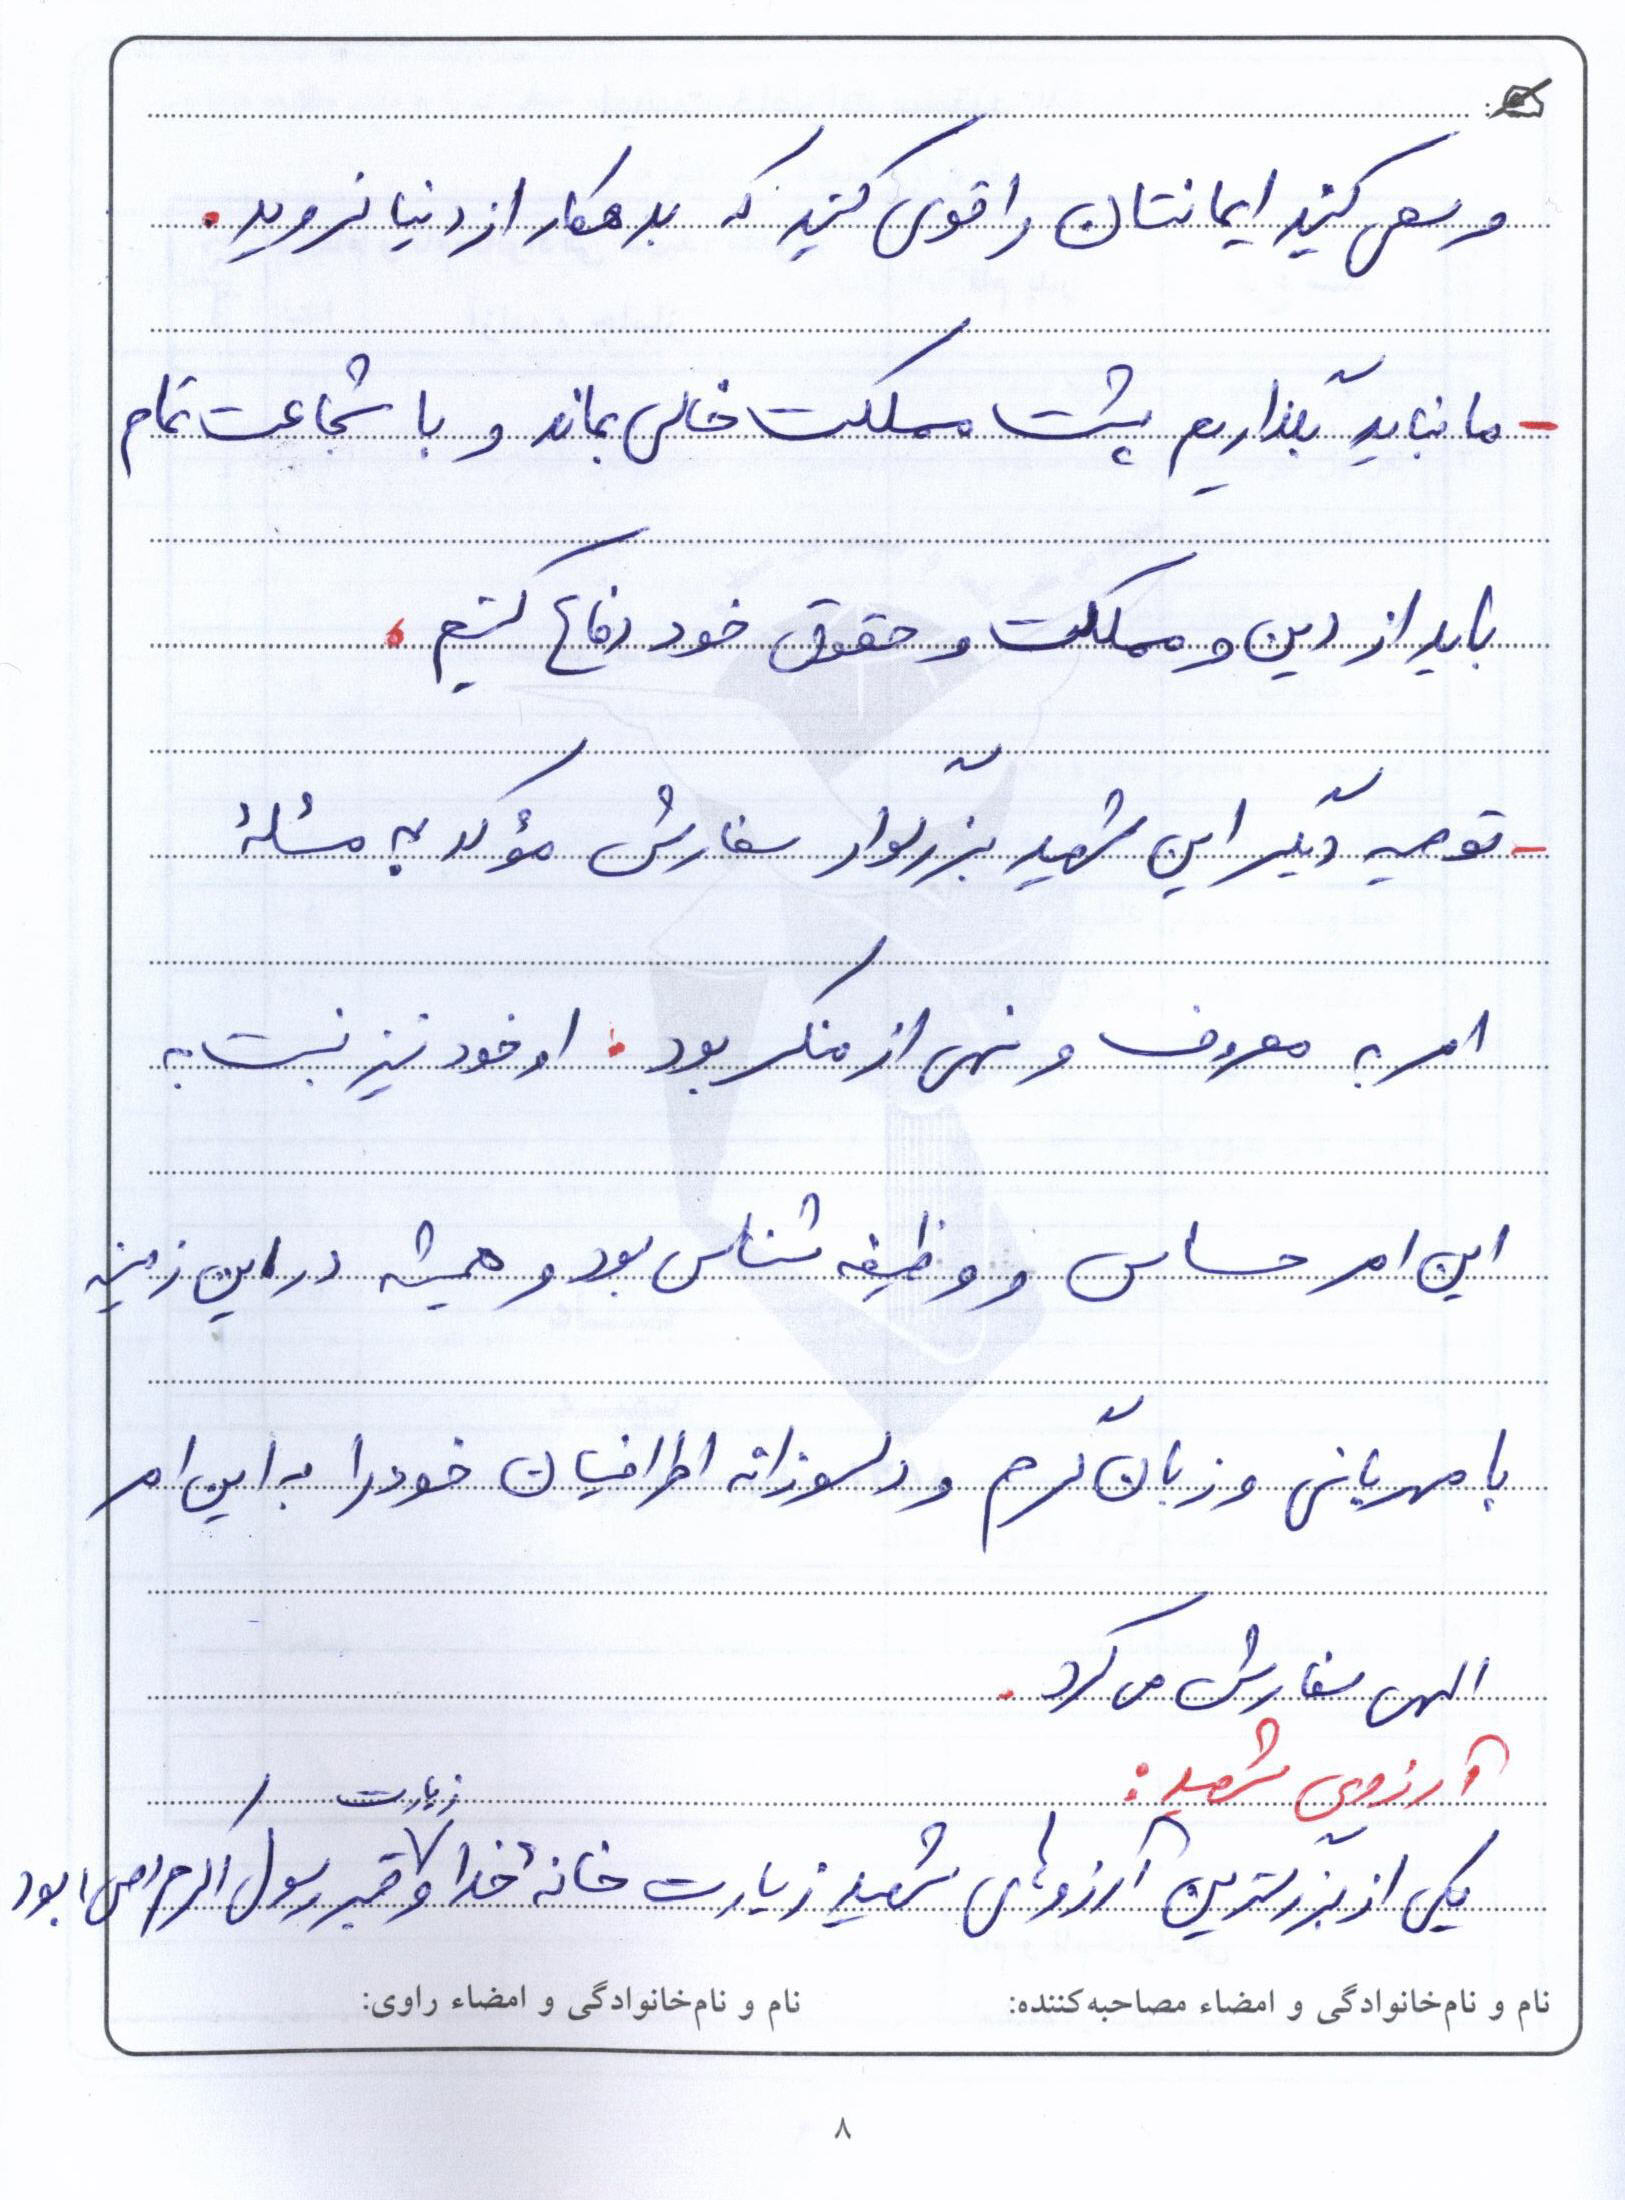 و سعی کنید ایمانتان را قوی کنید که بدهکار از دنیا نروید.
- ما نباید بگذاریم پشت مملکت خالی بماند و با شجاعت تمام
باید از دین و مملکت و حقوق خود دفاع کنیم.
- توصیه دیگر این شهید بزرگوار سفارش مؤکد به مسئلهٔ
امر به معروف و نهی از منکر بود. او خود نیز نسبت به
این امر حساس و وظیفه شناس بود و همیشه در این زمینه
با مهربانی و زبان گرم و دلسوزانه اطرافیان خود را به این امر
الهی سفارش می کرد.
آرزوی شهید:
یکی از بزرگترین آرزوهای شهید زیارت خانهٔ خدا و زیارت قبر رسول اکرم (ص) بود
نام و نام‌خانوادگی و امضاء مصاحبه‌کننده: نام و نام‌خانوادگی و امضاء راوی:
۸